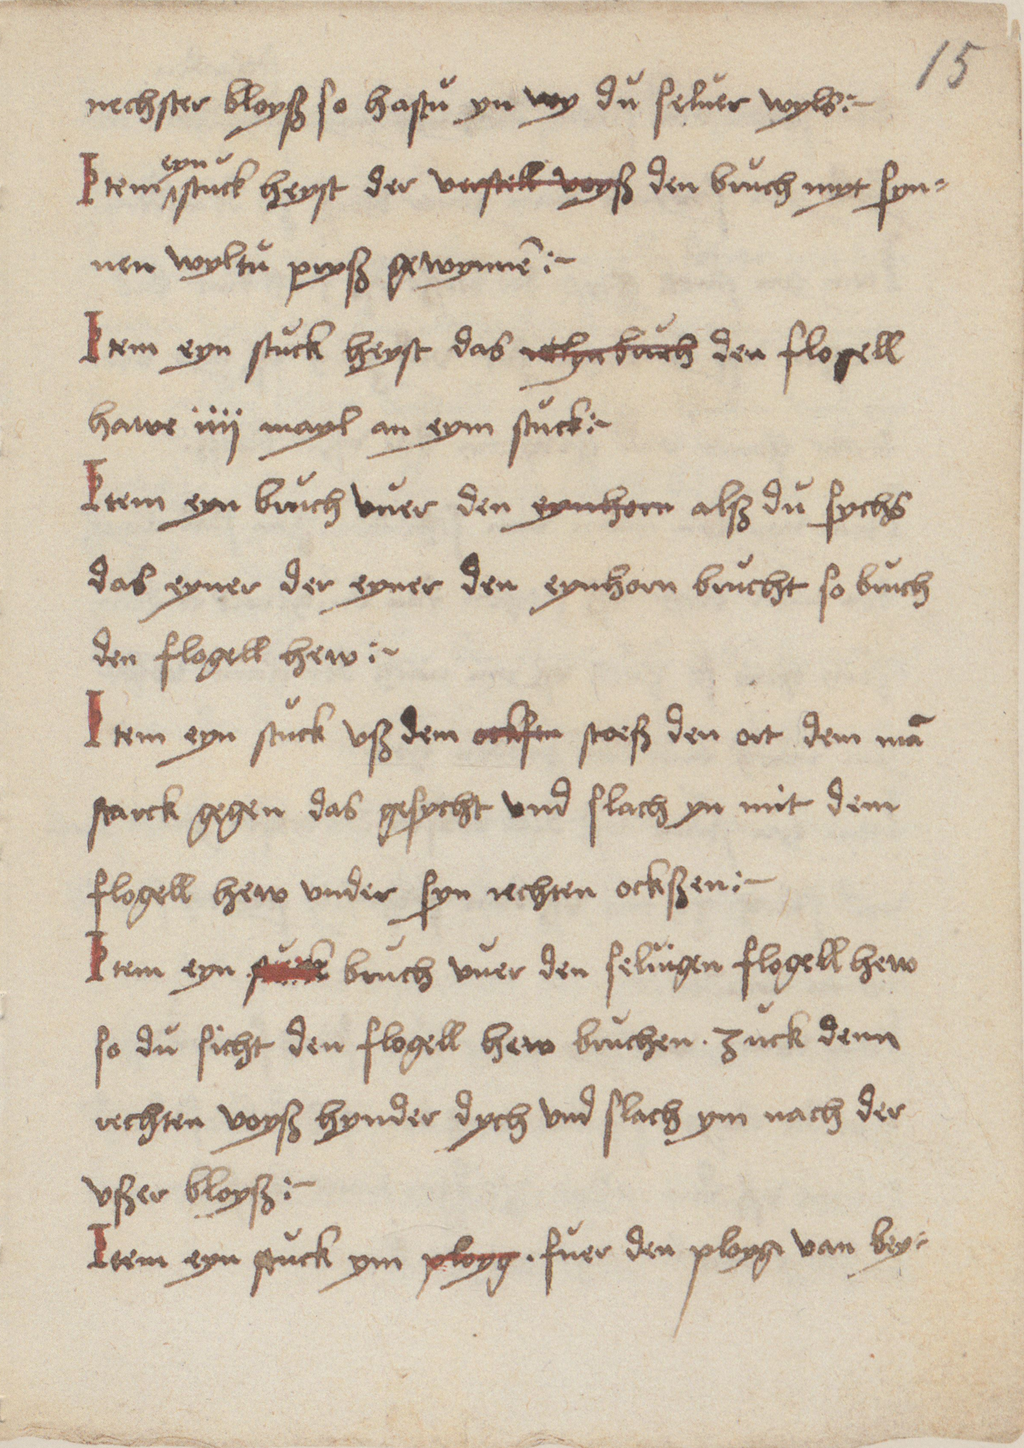 15
nechster bloyß so hastu yn wy du seluer wyls :~
Item eyn stuck heyst der verstell voyß den bruch myt syn=
nen wyltu pryß gewynnē :~
Item eyn stuck heyst das den flogell
hawe iiij mayl an eym stuck :~
Item eyn bruch vuer den eynhorn alß du sychs
das eyner der eyner den eynhorn brucht so bruch
den flogell hew :~
Item eyn stuck vß dem stoeß den ort dem mā
starck gegen das gesycht vnd slach yn mit dem
flogell hew vnder syn rechten ockßen :~
Item eyn stuck bruch vuer den seluigen flogell hew
so du sicht den flogell hew bruchen . zuck denn
rechten voyß hynder dych vnd slach ym nach der
vßer bloyß :~
Item eyn stuck ym ployg . fuer den ployg van bey=